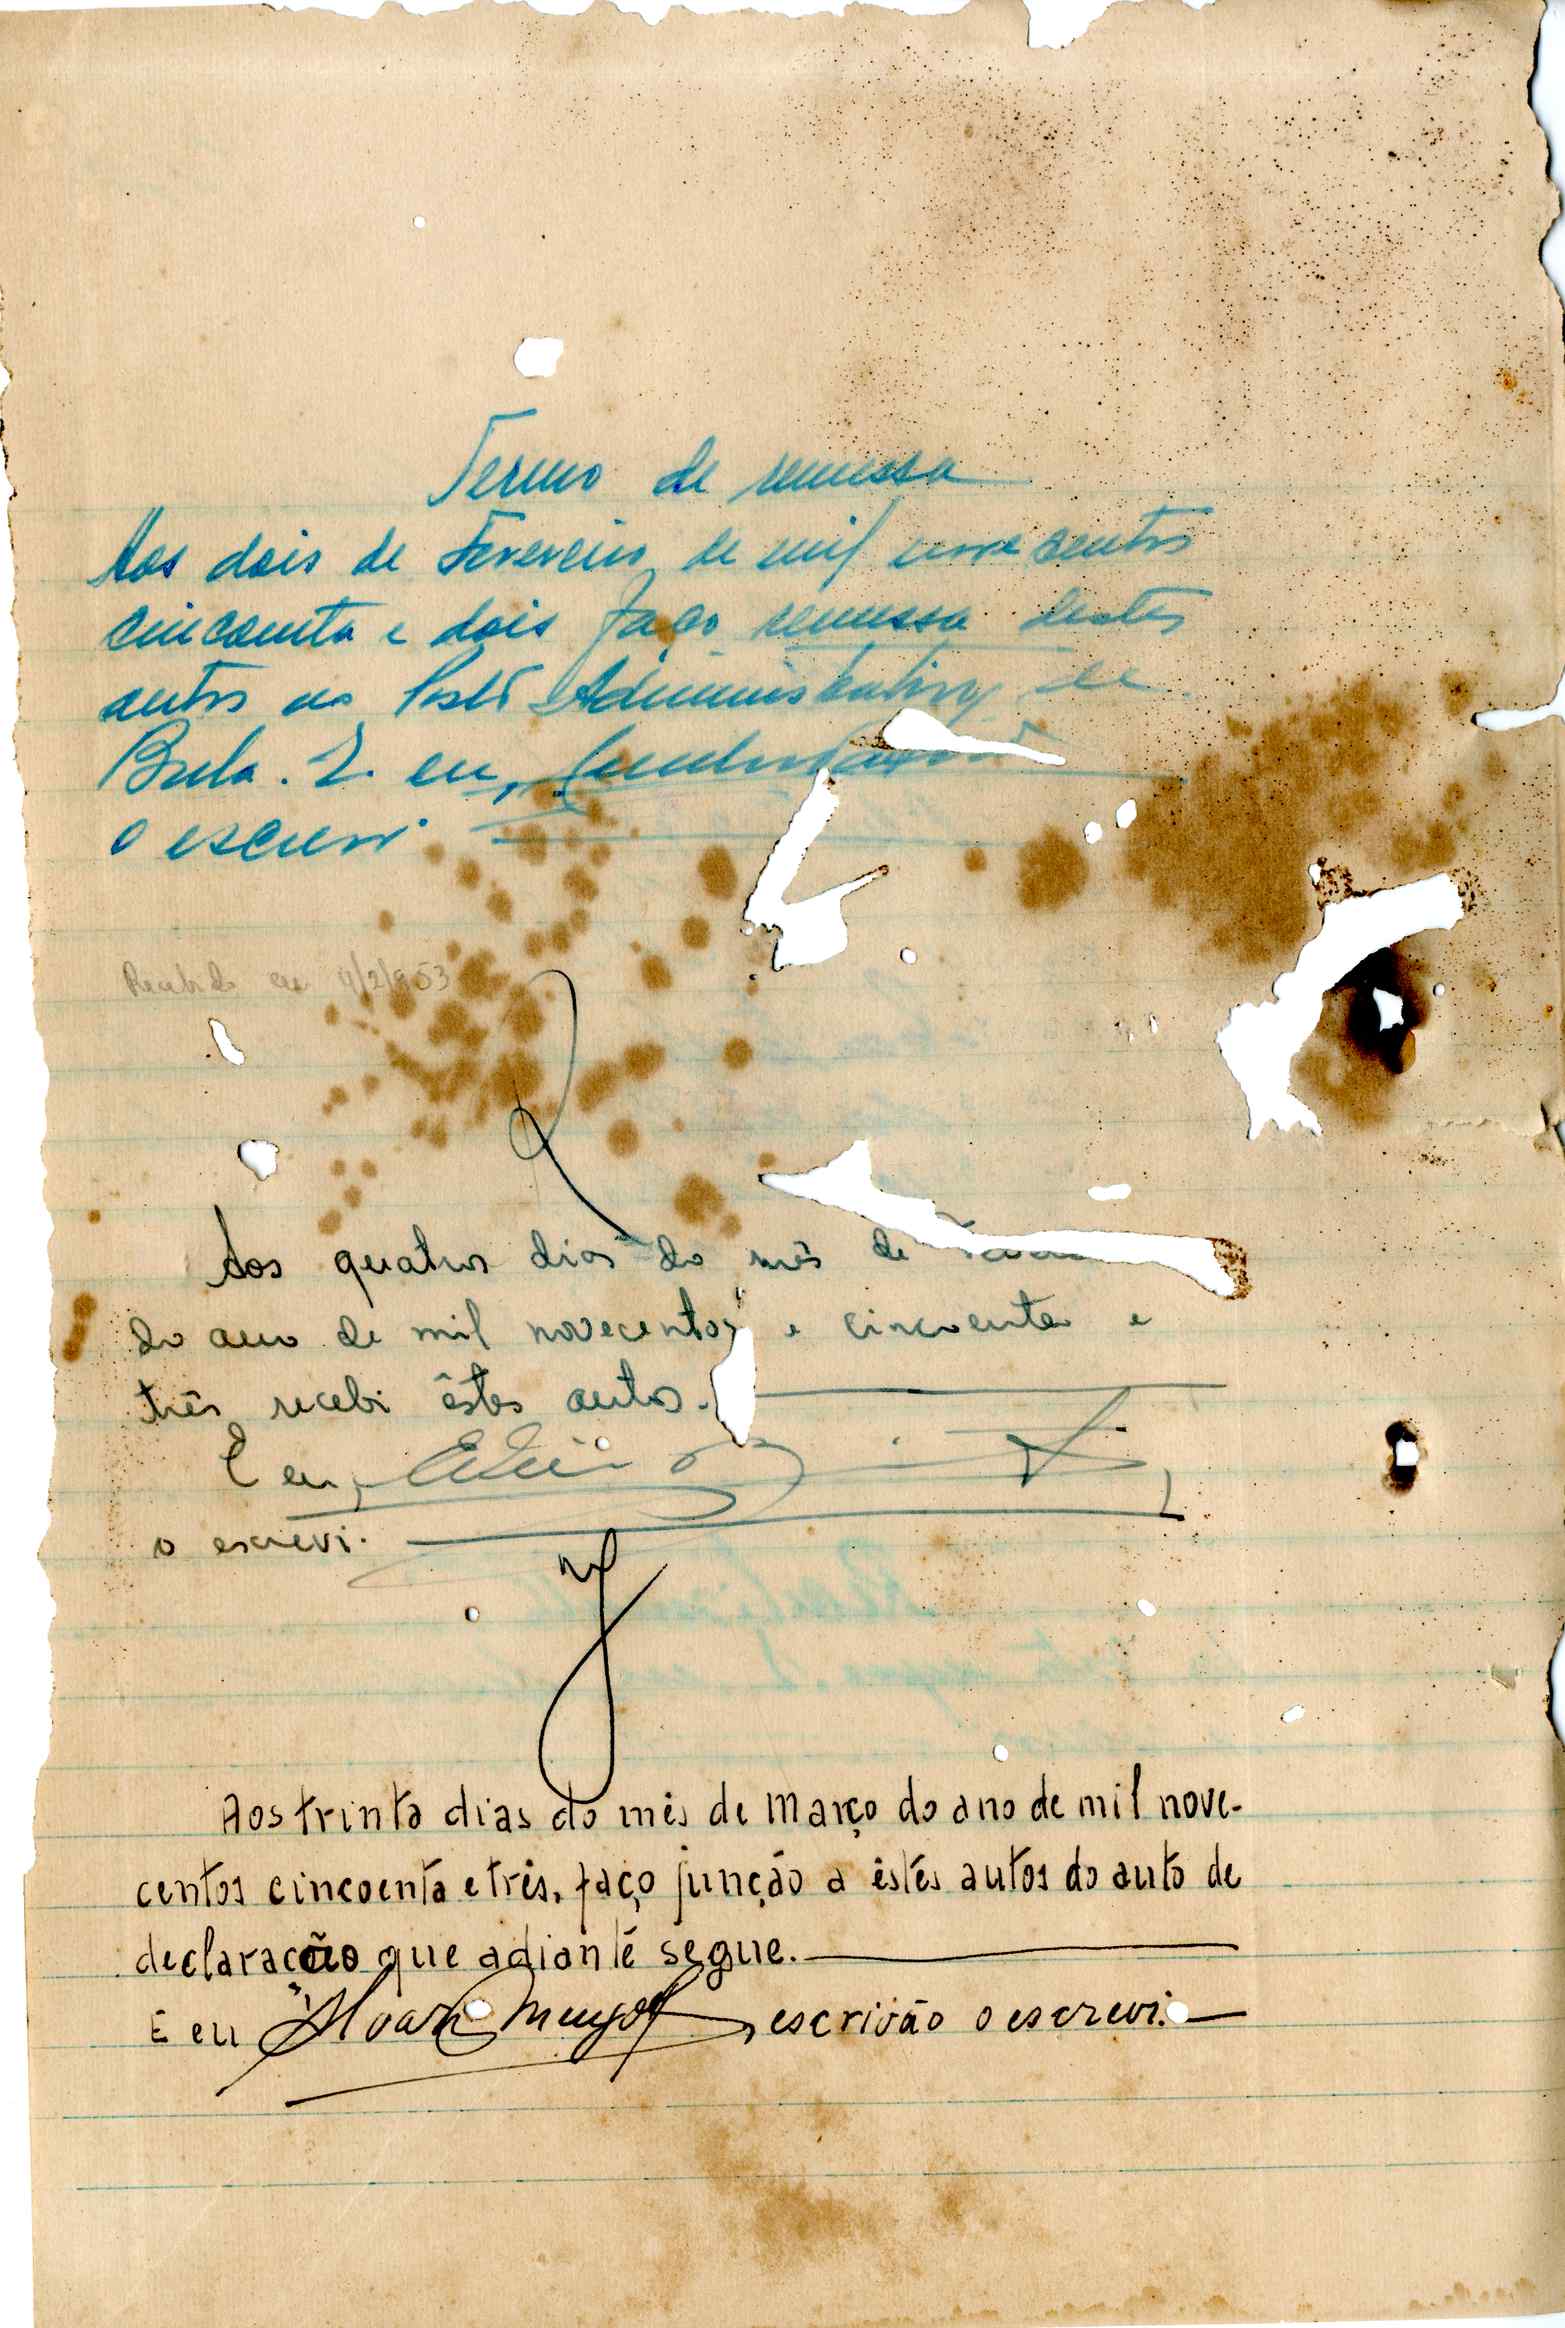 Termo de remessa
Aos dois de Fevereiro de mil novecentos
cincoenta e dois faço remessa destes
autos ao Posto Administrativo de
Bula. E eu,
o escrevi.
Recebido em 4/2/953
Aos quatro dias do mês de
do ano de mil novecentos e cincoenta e
três recebi êstes autos.
E eu,
o escrevi.
Aos trinta dias do mês de Março do ano de mil nove-
centos cincoenta e três, faço junção a êstes autos do auto de
declaracão que adiante segue.
E eu , escrivão o escrevi.